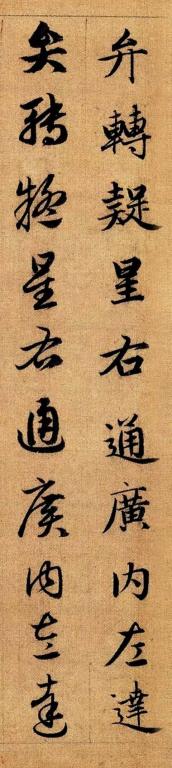 弁轉疑星右通廣內左達
弁轉疑星右通廣內左達